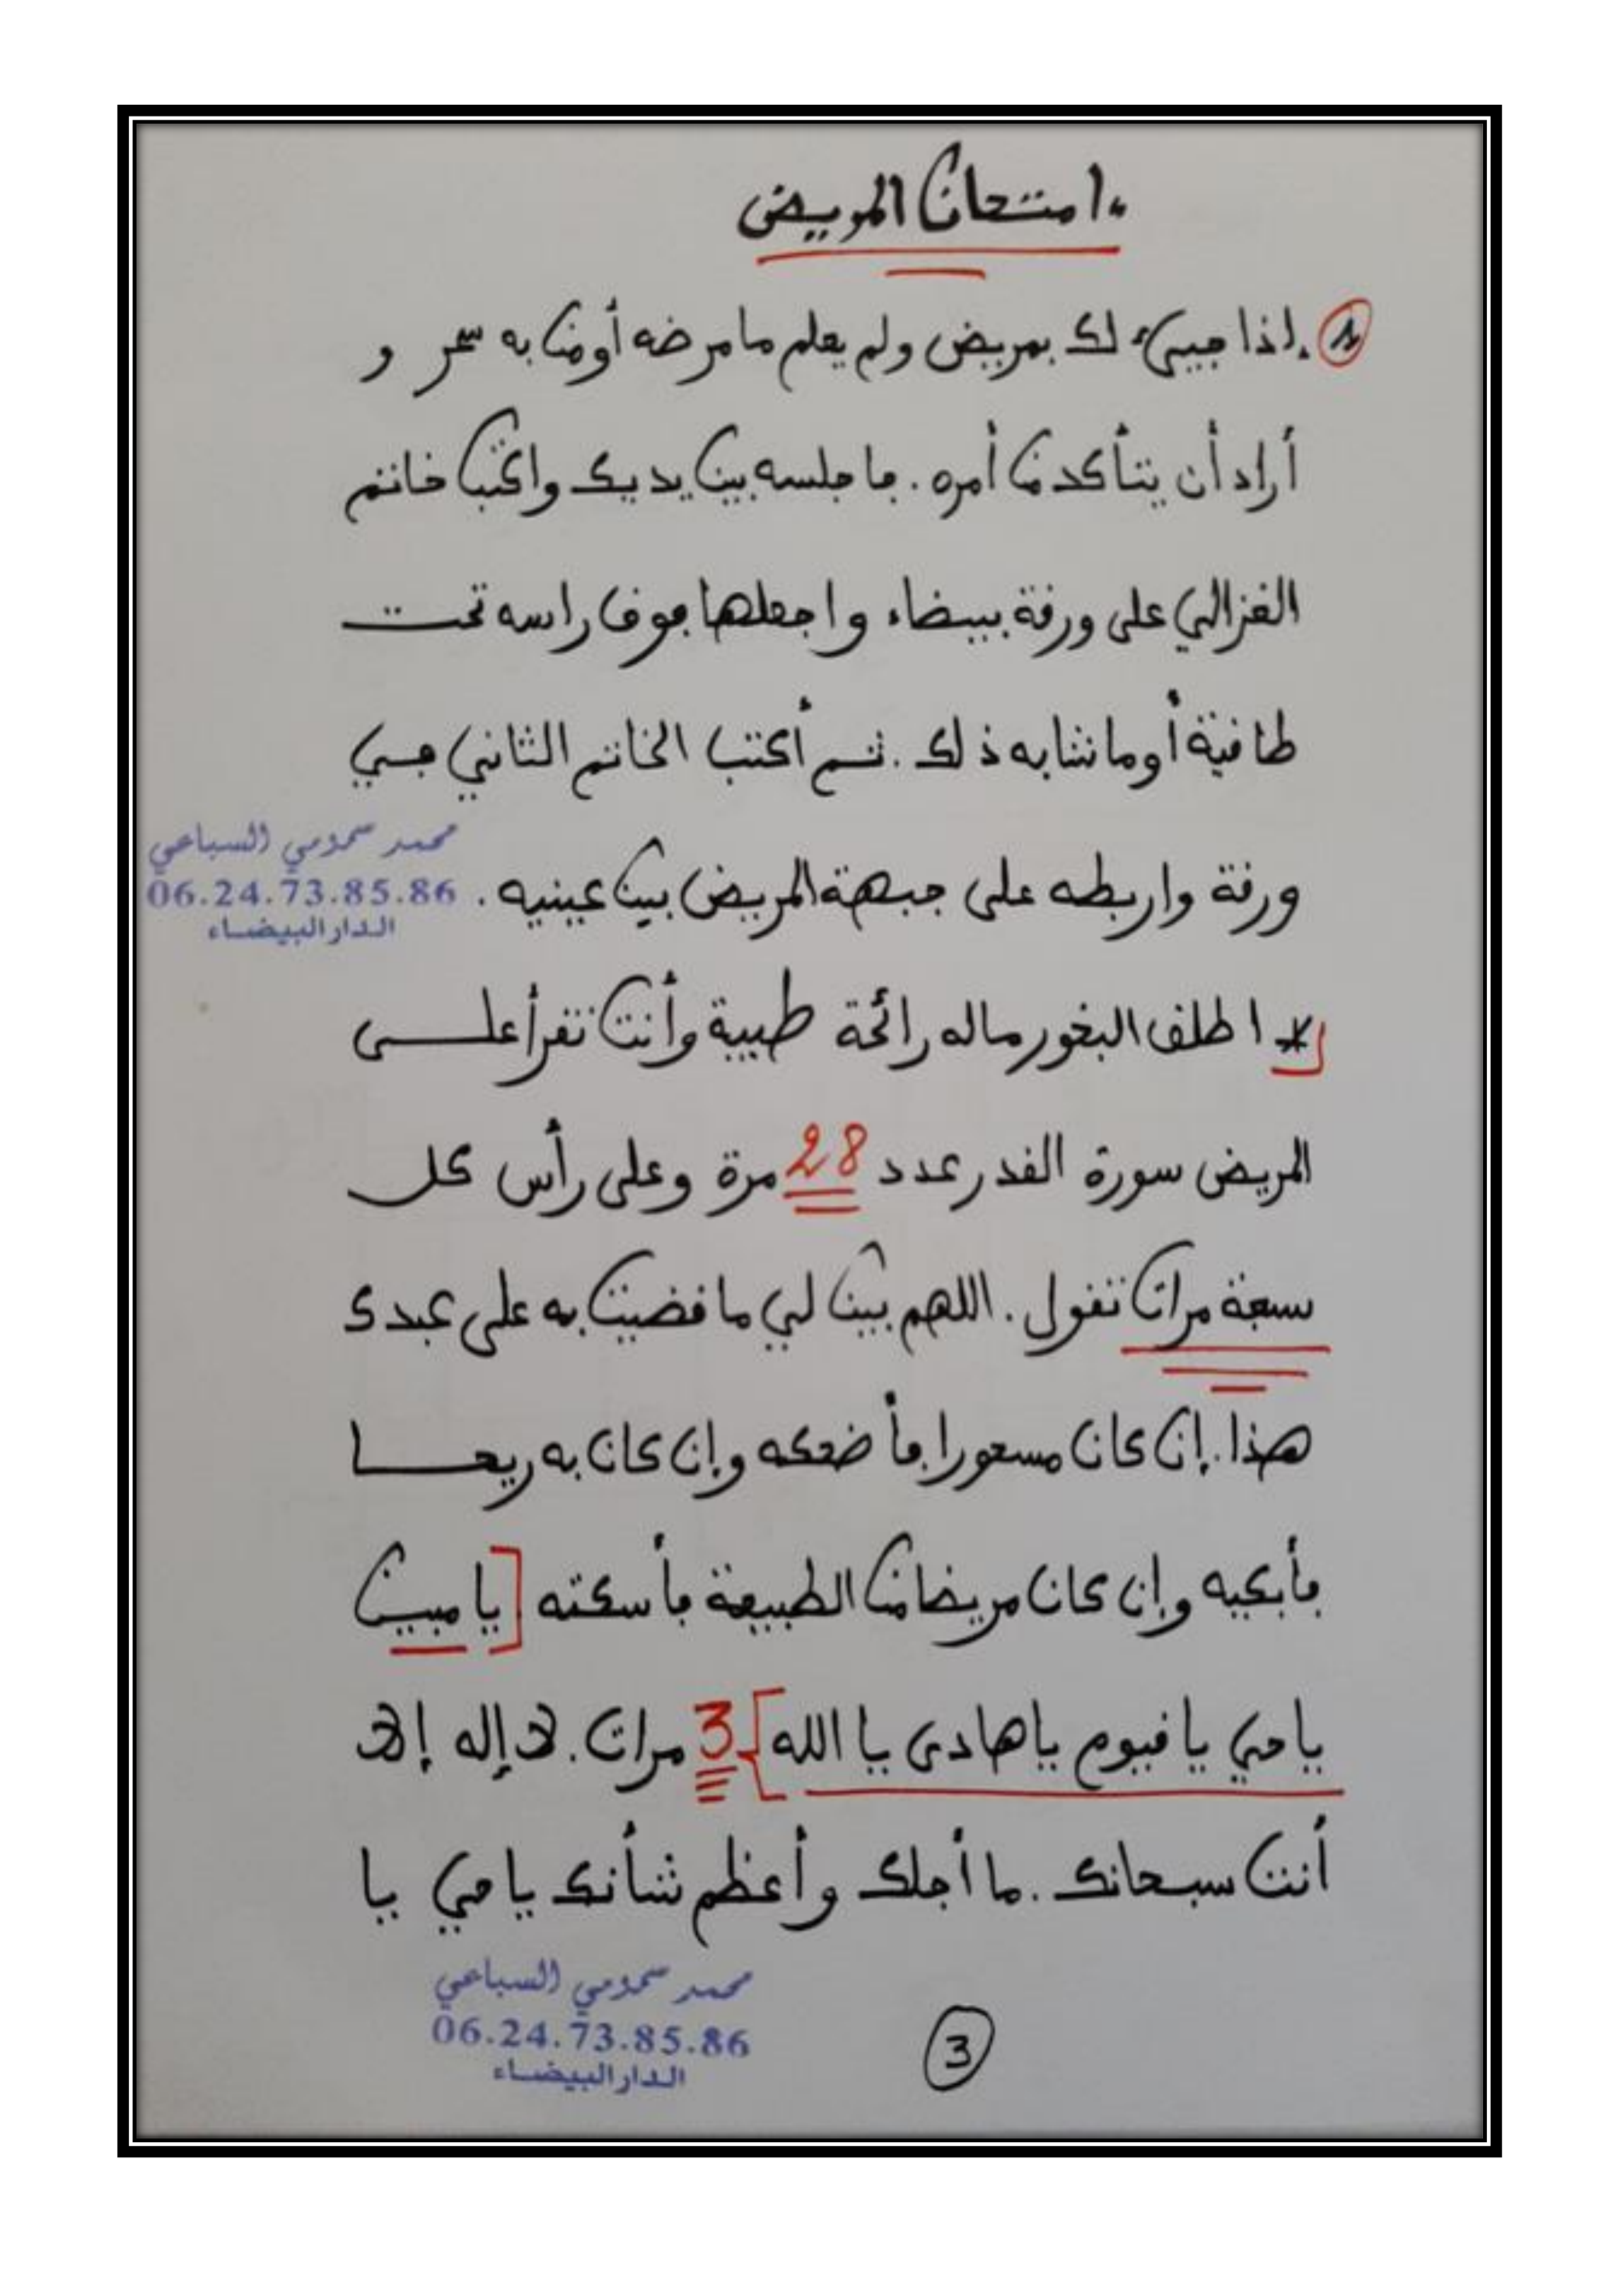 امتحان المريض
1. إذا جيىء لك بمريض ولم يعلم ما مرضه أو من به سحر و
أراد أن يتأكد من أمره. فاجلسه بين يديك واكتب خاتم
الغزالي على ورقة بيضاء واجعلها فوق راسه تحت
طاقية أو ما شابه ذلك. ثم أكتب الخاتم الثاني في
ورقة واربطه على جبهة المريض بين عينيه.
محمد سمومي السباعي
06.24.73.85.86
الدار البيضاء
* اطلق البخور ماله رائحة طيبة وأنت تقرأ على
المريض سورة القدر عدد 28 مرة وعلى رأس كل
سبعة مرات تقول. اللهم بين لي ما قضيت به على عبدك
هذا. إن كان مسحورا فأضحكه وإن كان به ريحا
فأبكيه وإن كان مريضا من الطبيعة فأسكته [يا مبين
يا حي يا قيوم يا هادي يا الله] 3 مرات. لا إله إلا
أنت سبحانك. ما أجلك وأعظم شأنك يا حي يا
محمد سمومي السباعي
06.24.73.85.86
الدار البيضاء
3